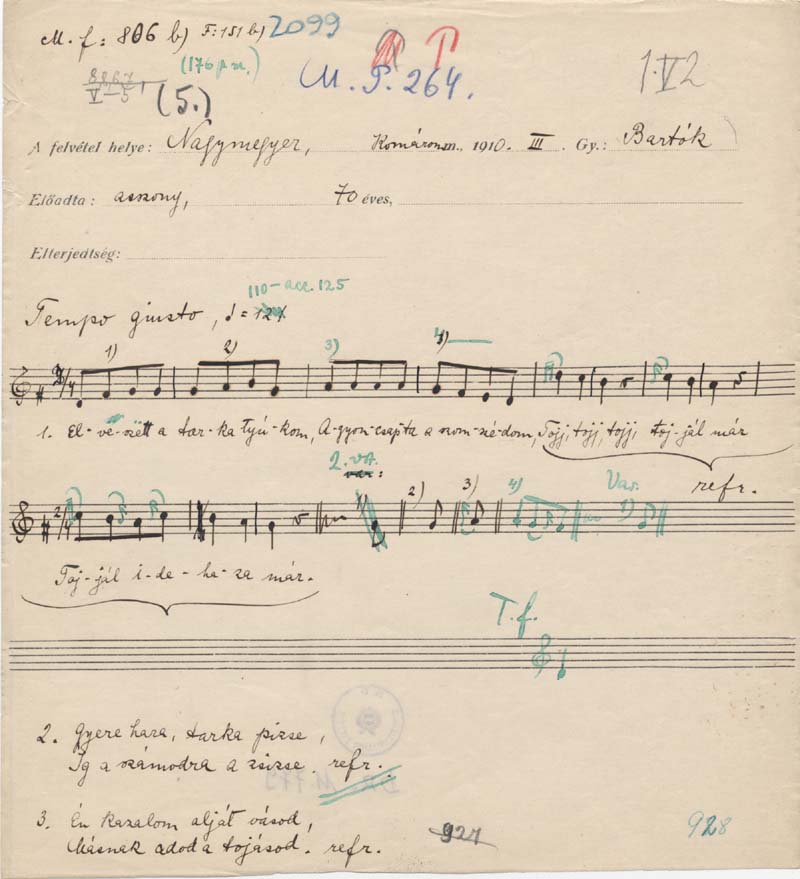 M. f: 806 b) F: 151 b) 2099
(176 p sz.)
M. P. 264.
1.V2
V-5 (5.)
A felvétel helye: Nagymegyer, Komárom m., 1910. III. Gy.: Bartók
Előadta: asszony, 70 éves,
Elterjedtség:
110 - acc. 125
Tempo giusto, ♩ =
1) 2) 3) 4)
2/4
1. El-ve-szett a tar-ka tyú-kom, A-gyon-csapta a szom-szé-dom, Tojj, tojj, tojj, toj-jál már
refr.
2. vsz.
var:
2) 3) 4) Var. 1)
2/4
Toj-jál i-de-ha-za már.
T. f.
2. Gyere haza, tarka pizse,
Ig a számodra a zsizse. refr.
3. Én kazalom alját vásod,
Másnak adod a tojásod. refr.
921
928